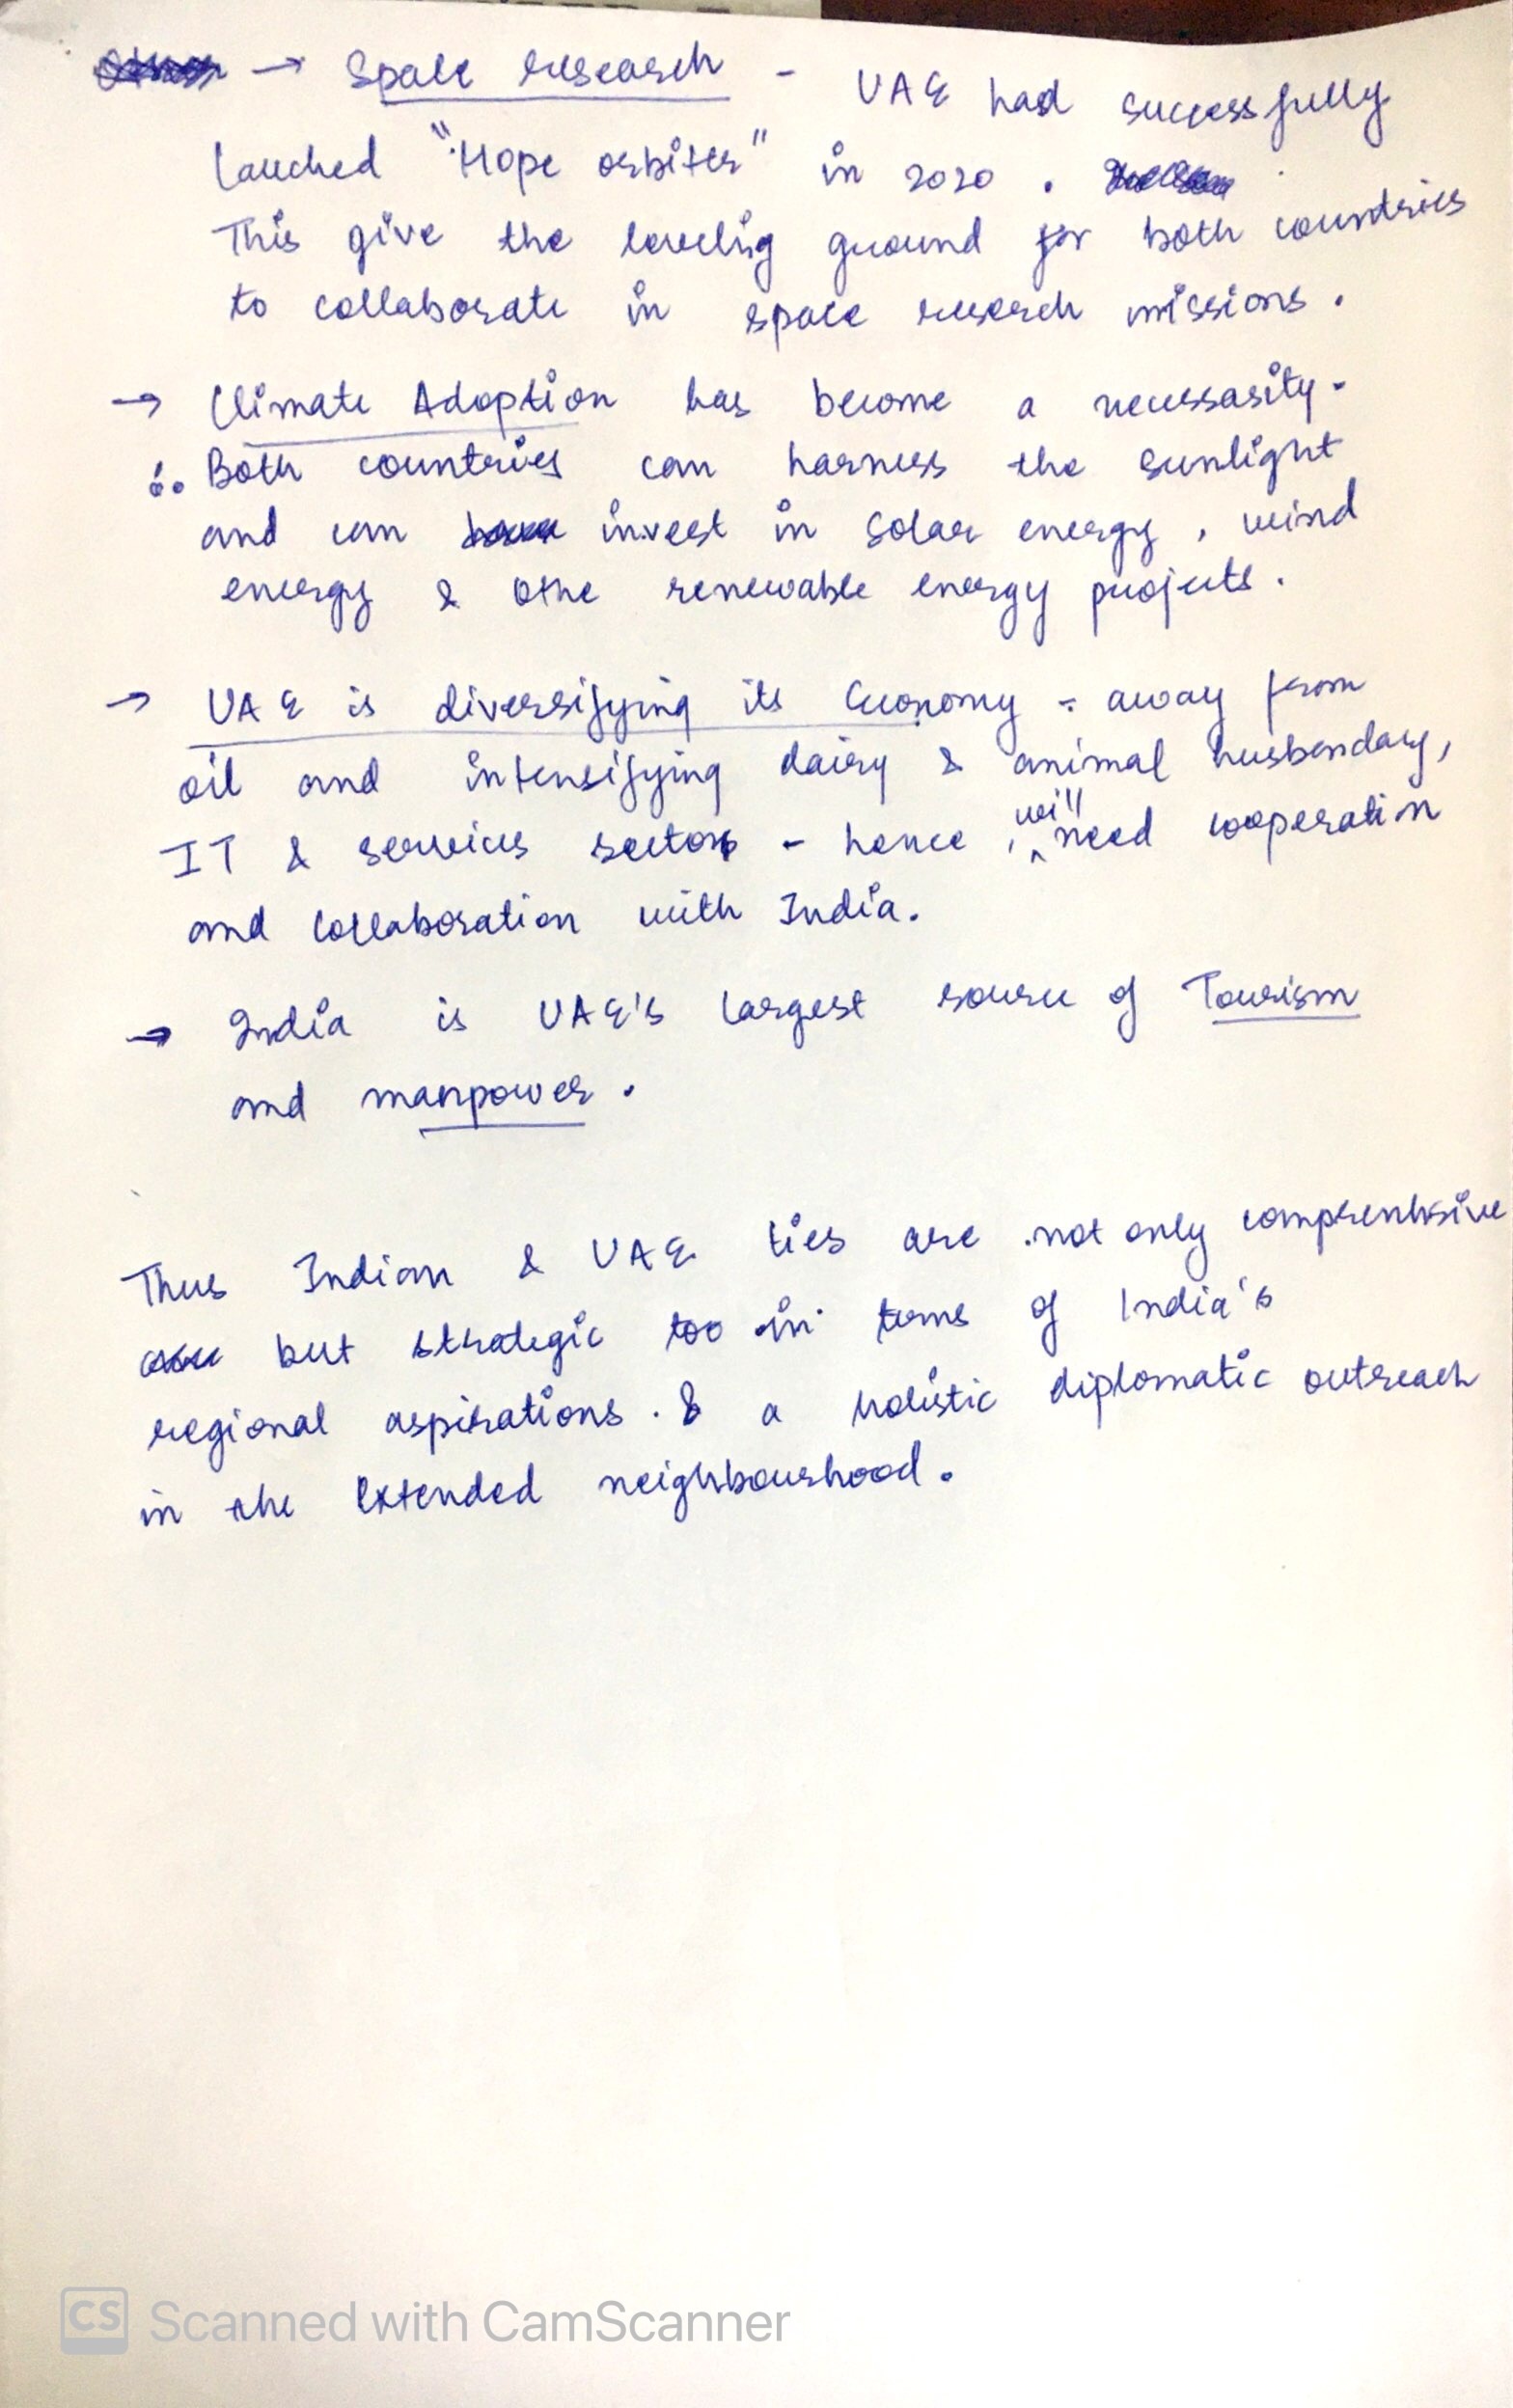 → Space research - UAE had successfully
lauched "Hope orbiter" in 2020 .
This give the leveling ground for both countries
to collaborate in space reserch missions .
→ Climate Adoption has become a necessasity.
∴ Both countries can harness the sunlight
and can invest in Solar energy , wind
energy & othe renewable energy projects .
→ UAE is diversifying its Economy - away from
oil and intensifying dairy & animal husbandary,
IT & services sectors - hence , will need cooperation
and collaboration with India.
→ India is UAE's largest source of Tourism
and manpower .
Thus Indian & UAE ties are not only comprenhsive
but strategic too in terms of India's
regional aspirations . & a holistic diplomatic outreach
in the extended neighbourhood .
CS Scanned with CamScanner